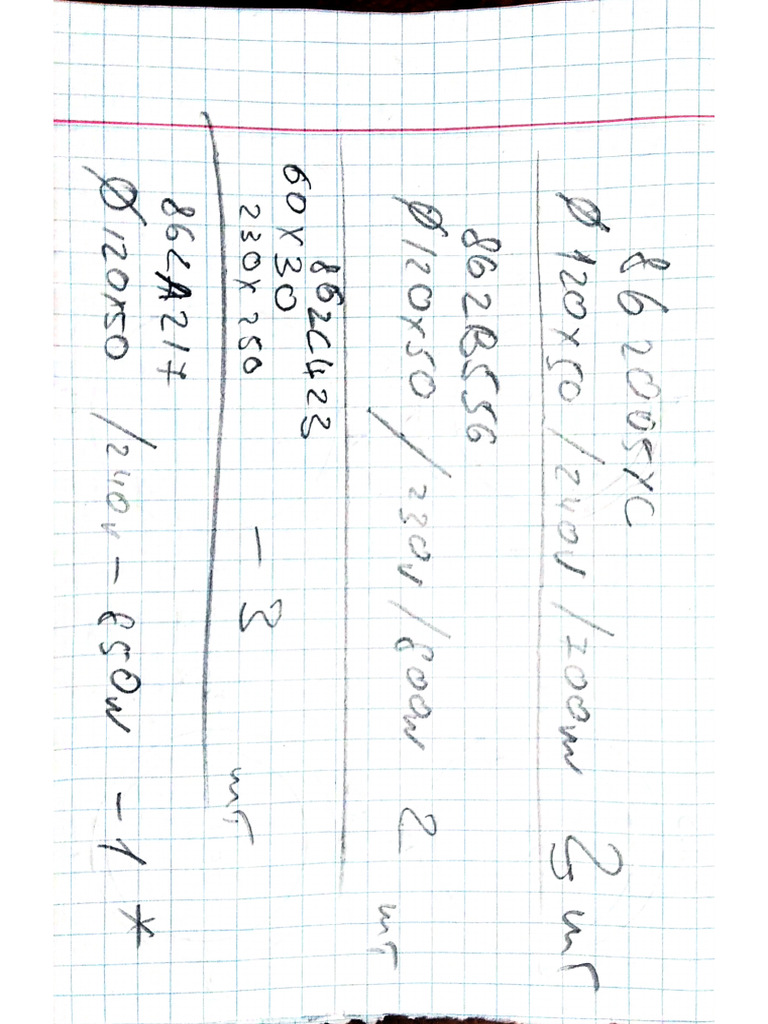 862005XC
Ø120x50 / 240v / 700w 2 шт
862B556
Ø120x50 / 230v / 800w 2 шт
862C423
60x30
230x250 - 3 шт
86CA217
Ø120x50 / 240v - 850w - 1 *